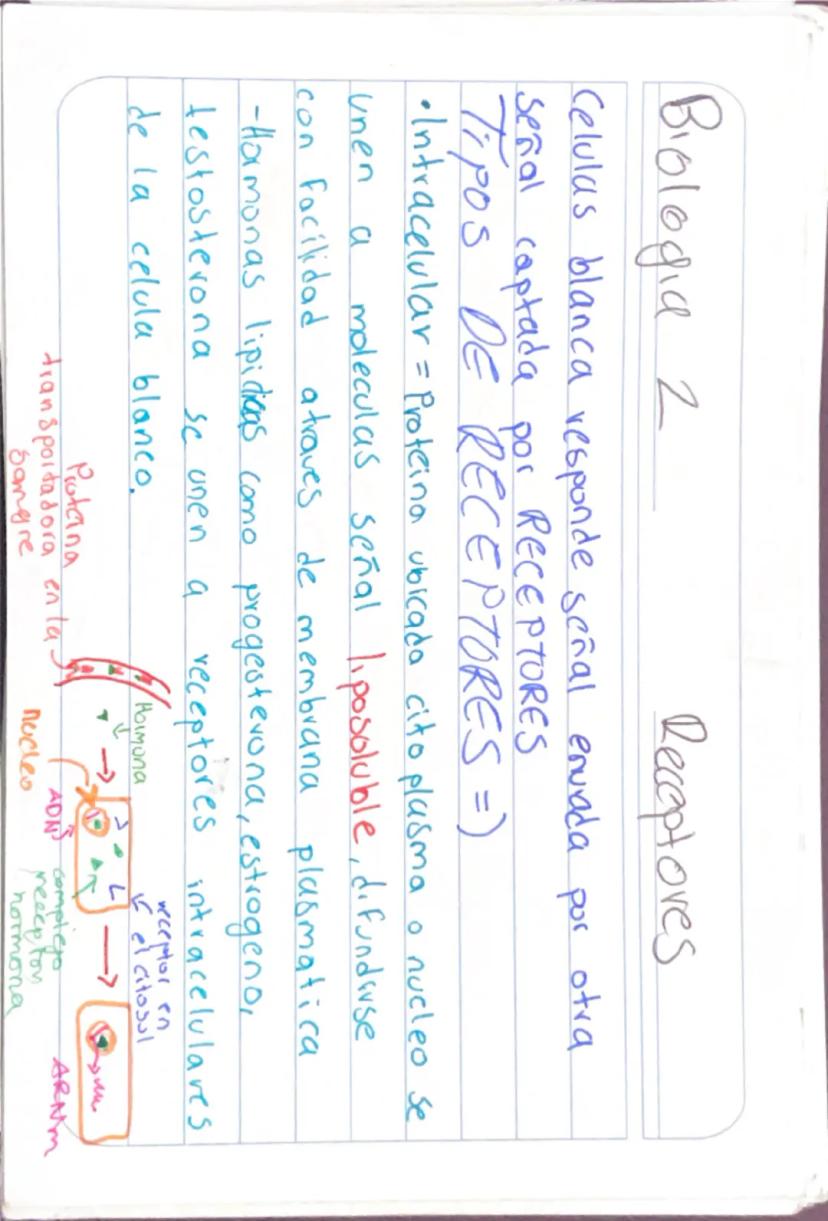 Biologia 2 Receptores
Celulas blanca responde señal enviada por otra
señal captada por RECEPTORES
TIPOS DE RECEPTORES =)
• Intracelular = Proteina ubicada citoplasma o nucleo se
unen a moleculas señal liposoluble, difundirse
con facilidad atraves de membrana plasmatica
- Hormonas lipidicas como progesterona, estrogeno,
testosterona se unen a receptores intracelulares
de la celula blanco.
Proteina
transportadora en la
sangre
Hormona
nucleo
ADN
receptor en
el citosol
complejo
receptor
hormona
ARNm